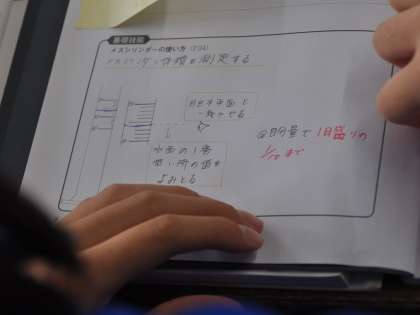 基礎技能
メスシリンダーの使い方
メスシリンダー…体積を測定する
目を水平面と
一致させる
水面の1番
低い所の値を
よみとる
目分量で1目盛りの
1/10まで